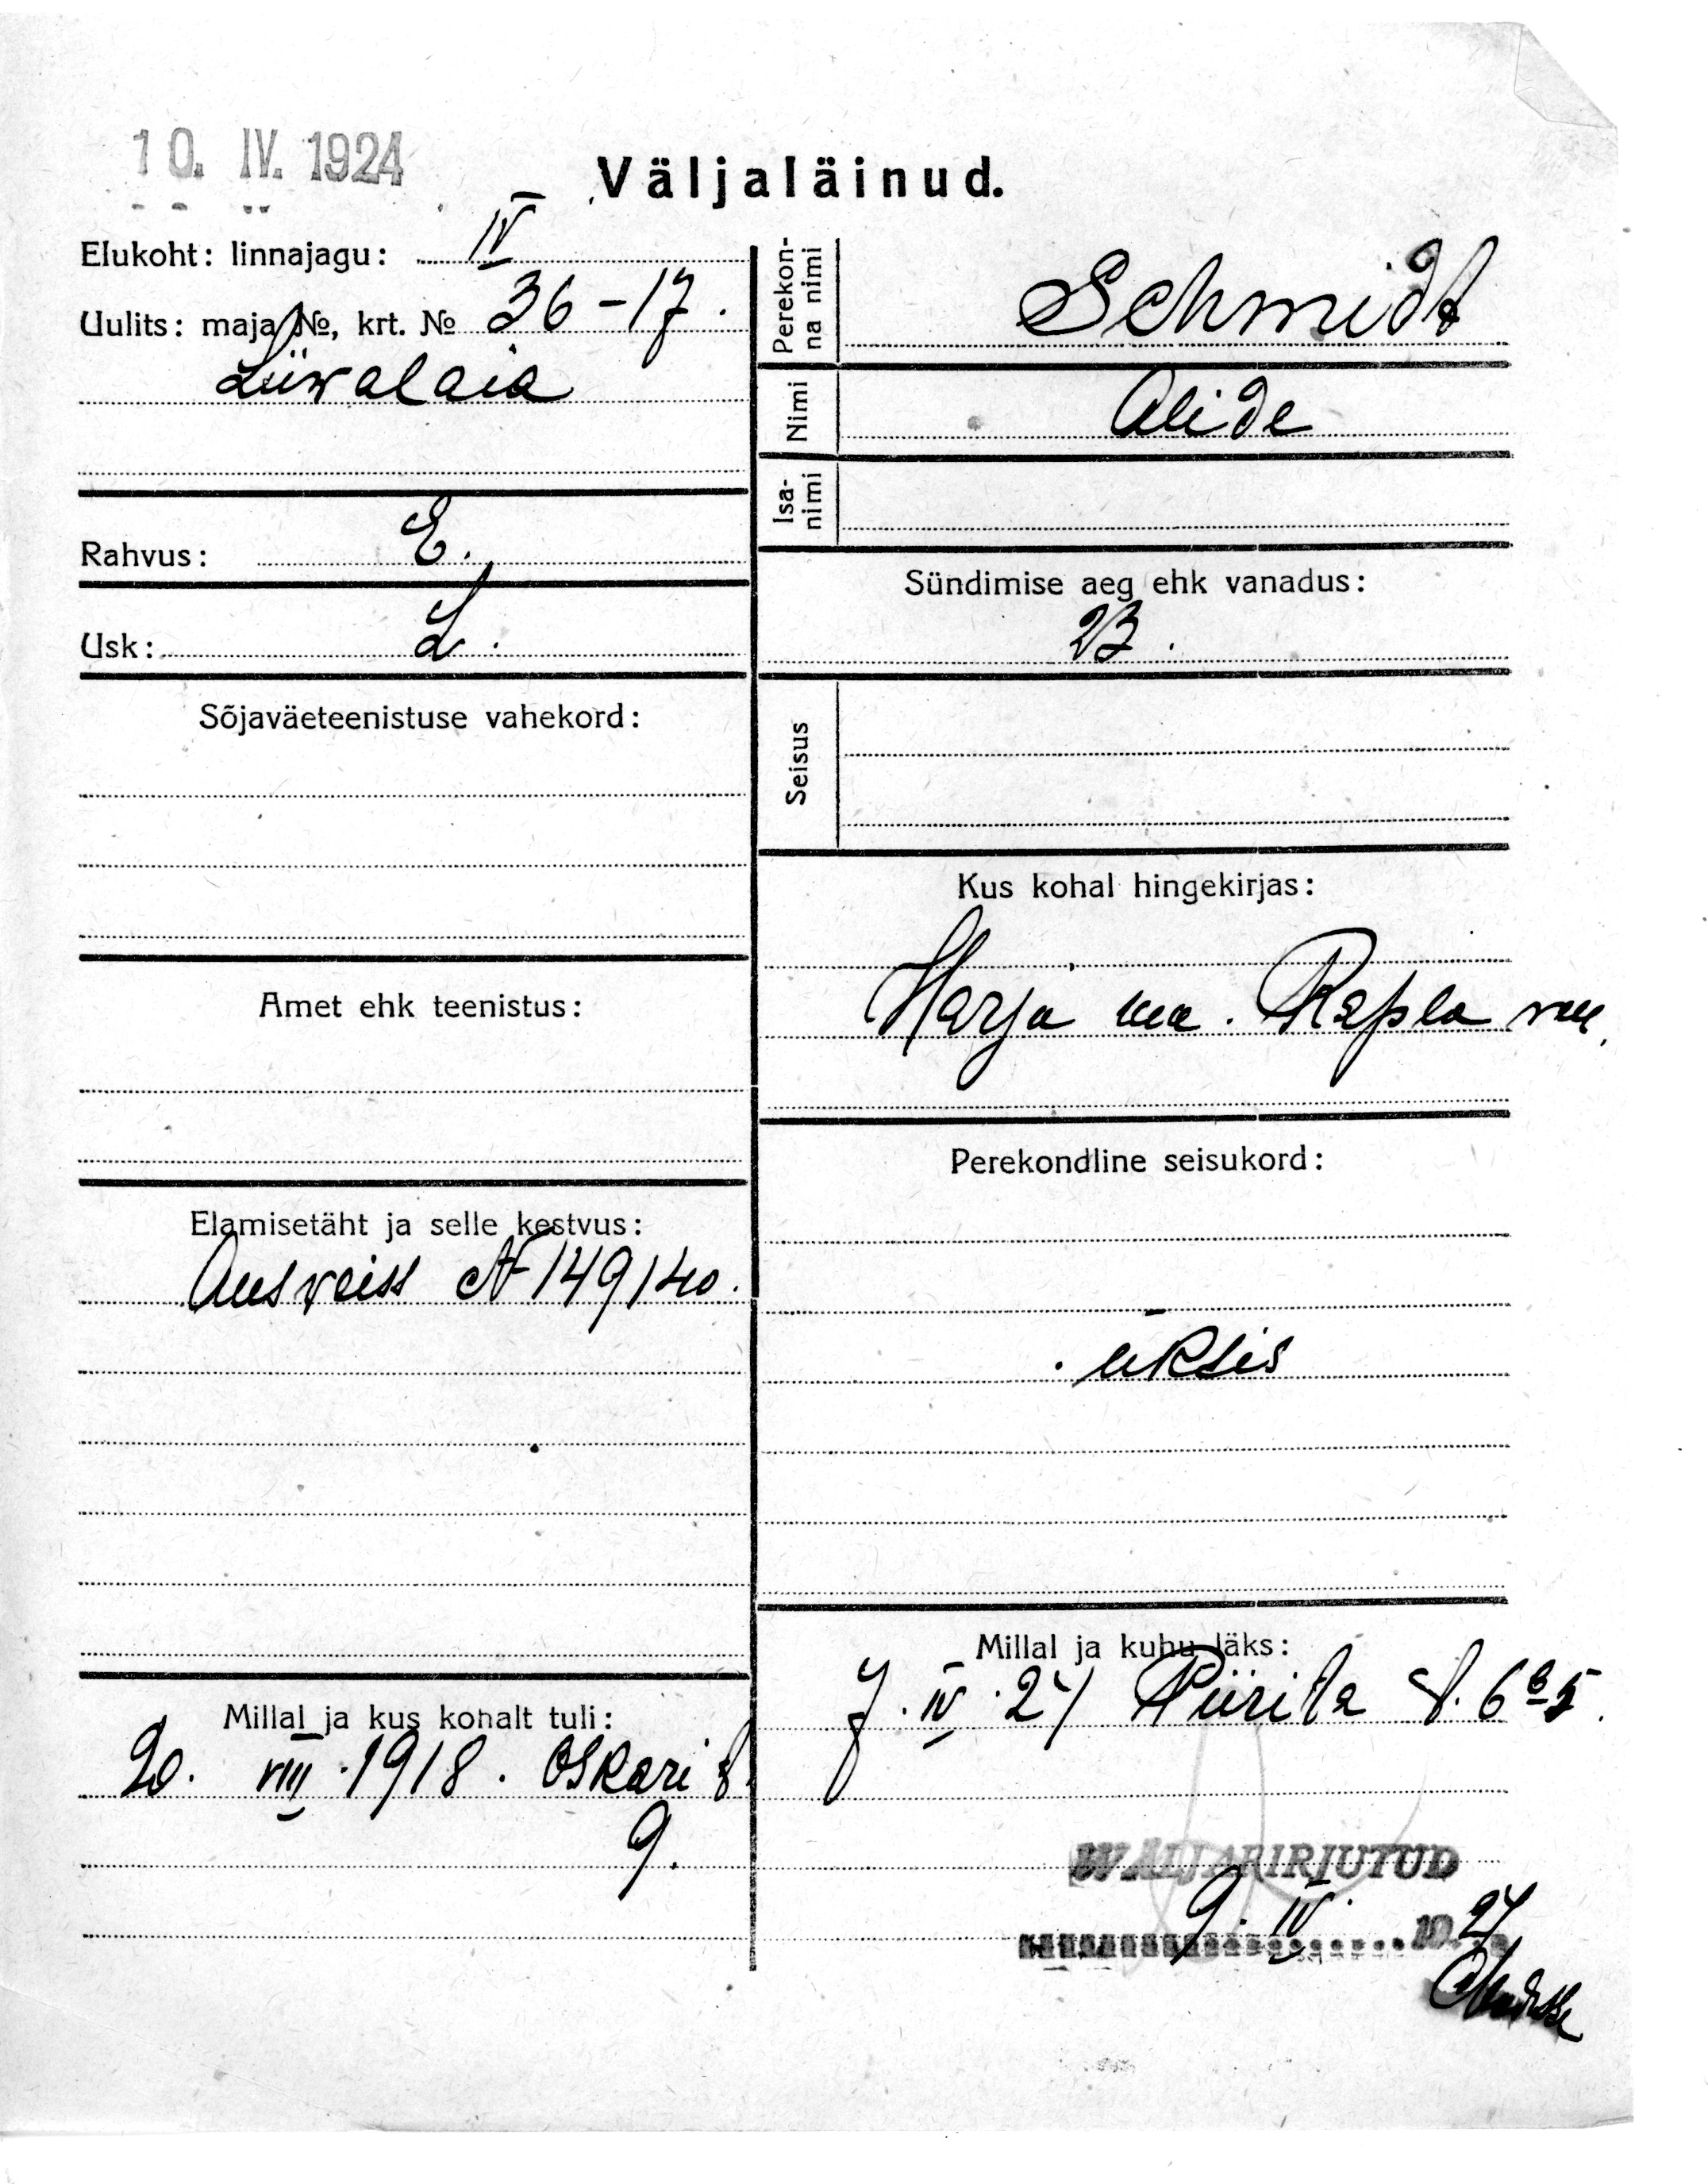 10. IV. 1924
Väljaläinud.
Elukoht: linnajagu: IV
Uulits: maja №, krt. № 36-17.
Liivalaia
Rahvus: E.
Usk: L.
Sõjaväeteenistuse vahekord:
Amet ehk teenistus:
Elamisetäht ja selle kestvus:
Ausveiss № 149140.
Millal ja kus kohalt tuli:
20. VIII. 1918. Oskari t.
9.
Perekon-
na nimi
Schmidt
Nimi Alide
Isa-
nimi
Sündimise aeg ehk vanadus:
23.
Seisus
Kus kohal hingekirjas:
Harju ma. Rapla v.
Perekondline seisukord:
üksis
Millal ja kuhu läks:
7. IV. 24 Piirita t. 6 5.
WÄLJAKIRJUTUD
9. IV. 1924